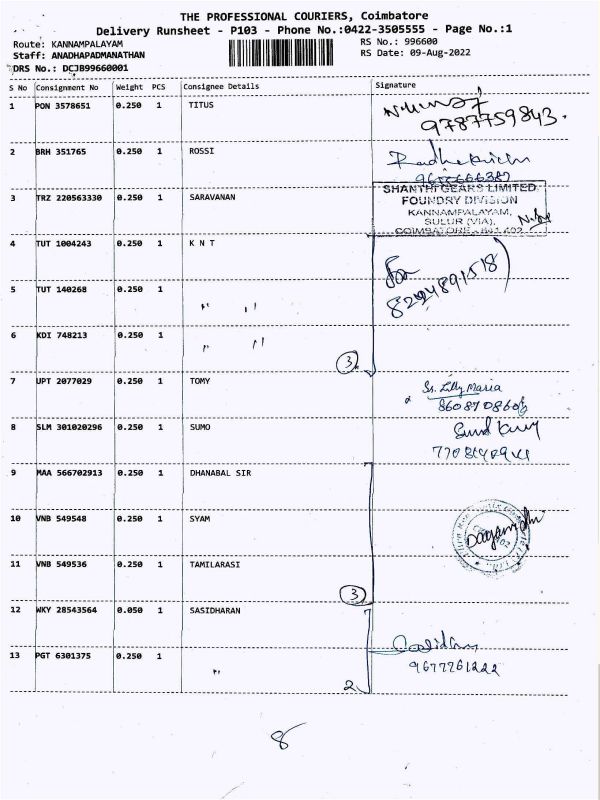 THE PROFESSIONAL COURIERS, Coimbatore
Delivery Runsheet - P103 - Phone No.:0422-3505555 - Page No.:1
Route: KANNAMPALAYAM RS No.: 996600
Staff: ANADHAPADMANATHAN RS Date: 09-Aug-2022
DRS No.: DCJB99660001
S No Consignment No Weight PCS Consignee Details Signature
1 PON 3578651 0.250 1 TITUS
9787759843.
2 BRH 351765 0.250 1 ROSSI
3 TRZ 220563330 0.250 1 SARAVANAN
SHANTHI GEARS LIMITED
FOUNDRY DIVISION
KANNAMPALAYAM,
SULUR (VIA),
COIMBATORE - 641 402
4 TUT 1004243 0.250 1 K N T
5 TUT 140268 0.250 1 " "
6 KDI 748213 0.250 1 " "
3
7 UPT 2077029 0.250 1 TOMY Sr. Lilly Maria
8 SLM 301020296 0.250 1 SUMO
9 MAA 566702913 0.250 1 DHANABAL SIR
10 VNB 549548 0.250 1 SYAM
11 VNB 549536 0.250 1 TAMILARASI
3
12 WKY 28543564 0.050 1 SASIDHARAN
13 PGT 6301375 0.250 1 "
9677261222
2
8